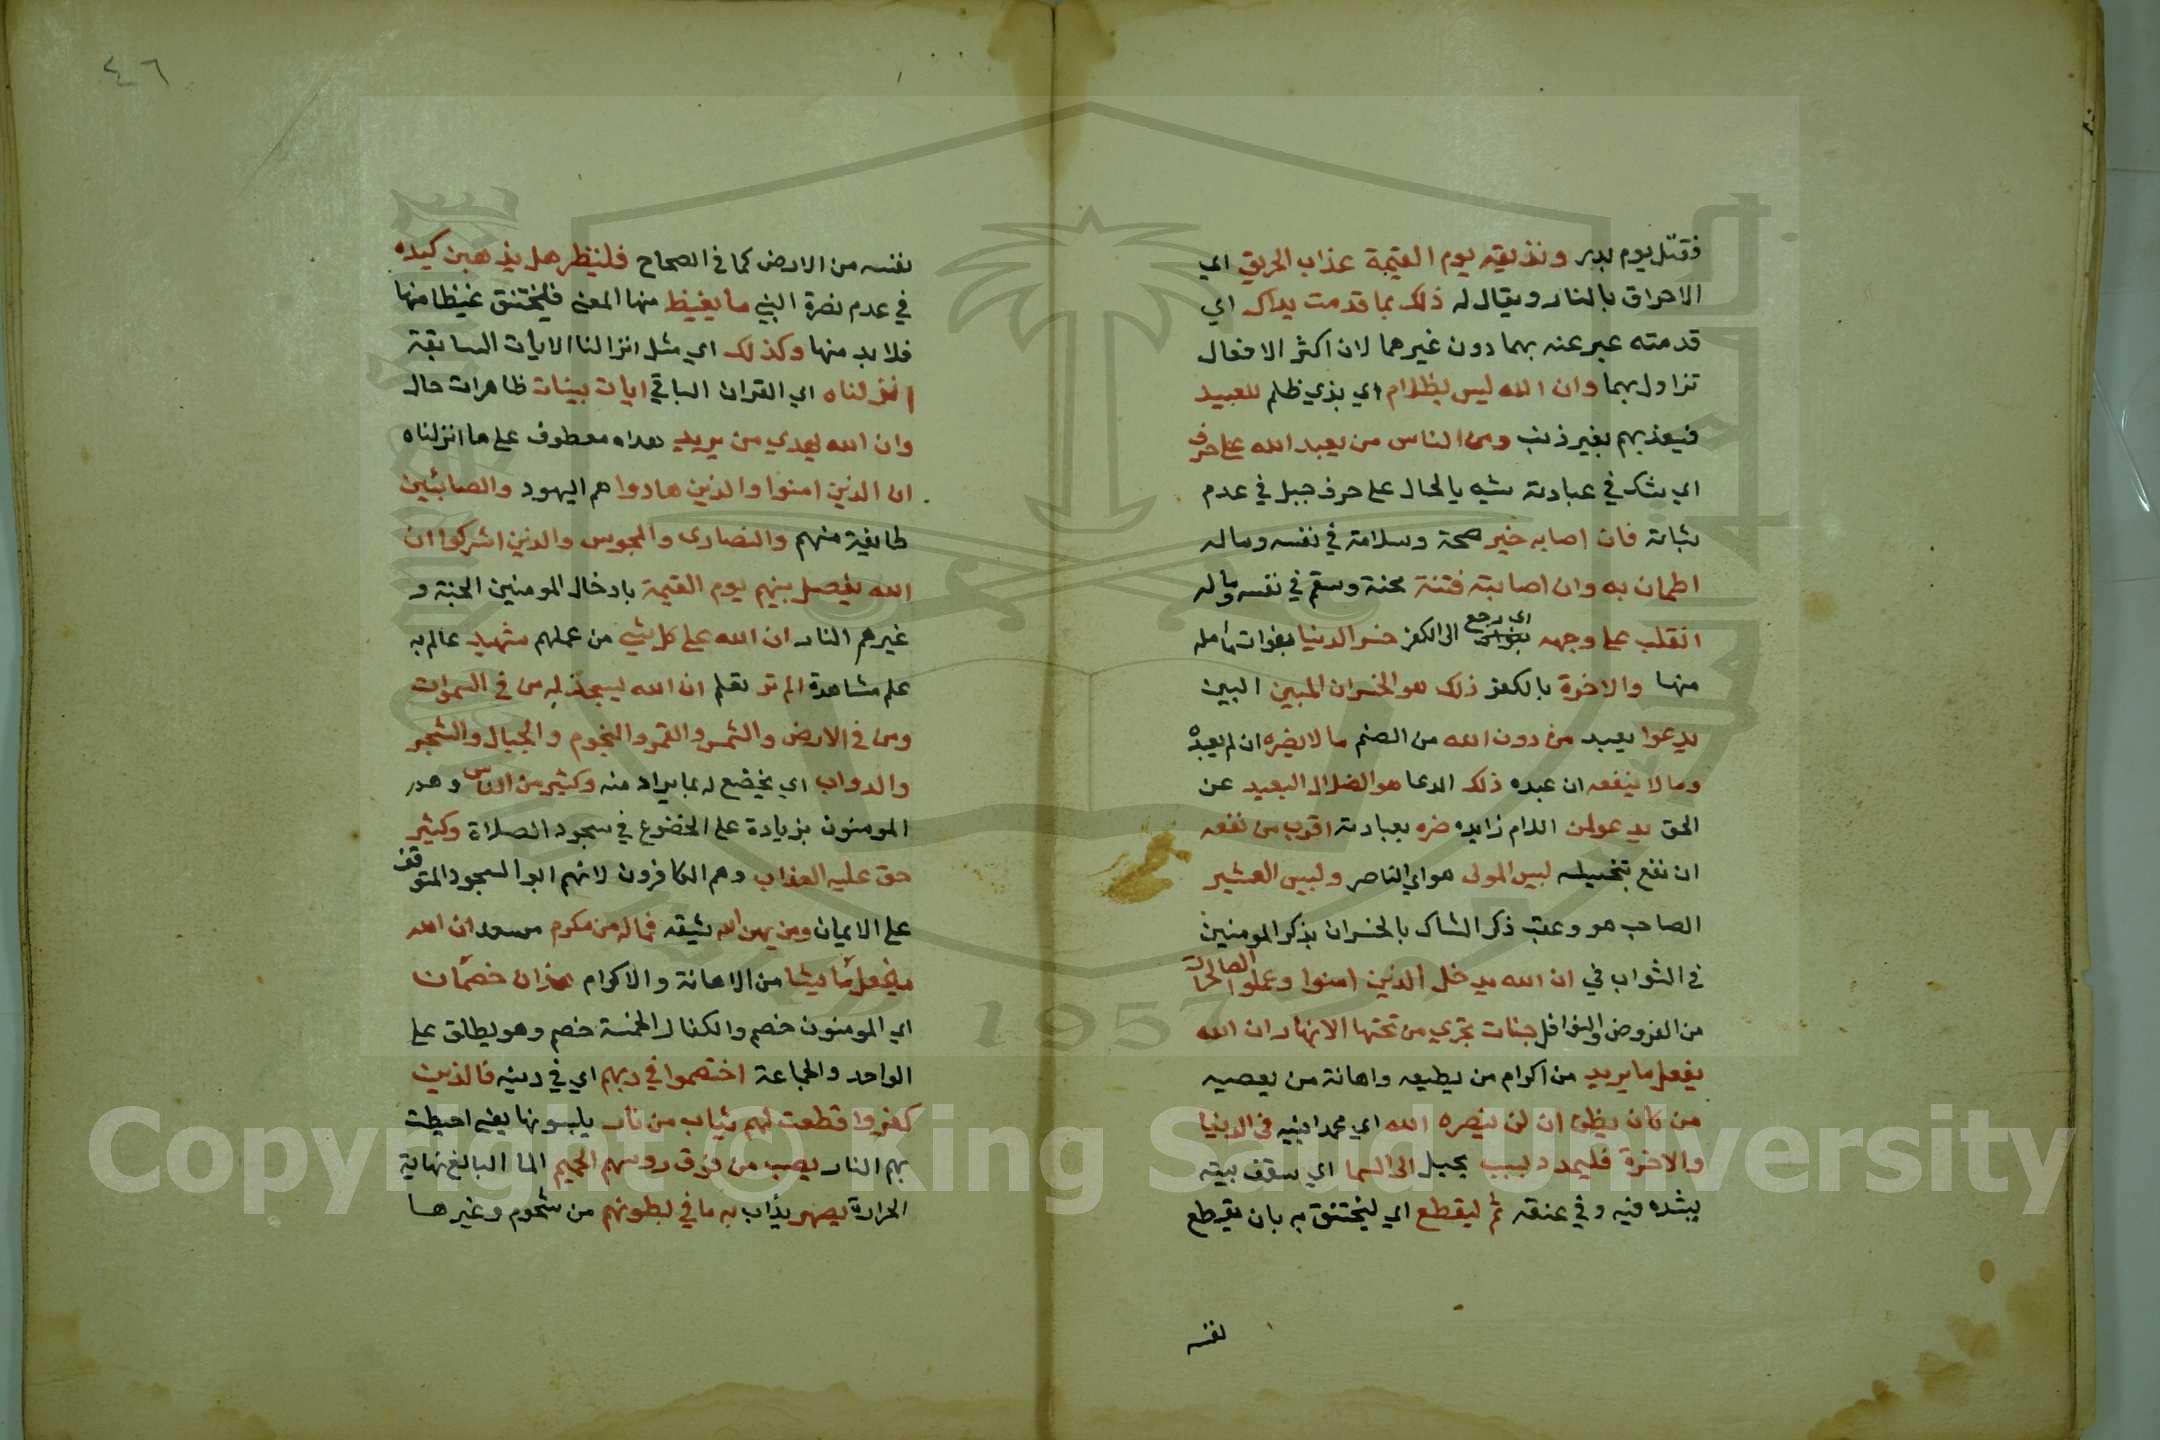 فقتل يوم بدر ونذيقه يوم القيمة عذاب الحريق اي
الاحراق بالنار ويقال له ذلك بما قدمت يداك اي
قدمته عبر عنه بهما دون غيرهما لان اكثر الافعال
تزاول بهما وان الله ليس بظلام اي بذي ظلم للعبيد
فيعذبهم بغير ذنب ومن الناس من يعبد الله على حرف
اي شك في عبادته شبه بالحال على حرف جبل في عدم
ثباته فان اصابه خير صحة وسلامة في نفسه وماله
اطمان به وان اصابته فتنة محنة وسقم في نفسه وماله
انقلب على وجهه اي رجع الى الكفر خسر الدنيا بفوات ما امله
منها والاخرة بالكفر ذلك هو الخسران المبين البين
يدعوا يعبد من دون الله من الصنم ما لا يضره ان لم يعبده
وما لا ينفعه ان عبده ذلك الدعا هو الضلال البعيد عن
الحق يدعو لمن اللام زايده ضره بعبادته اقرب من نفعه
ان نفع بتخيله لبيس المولى هو اي الناصر ولبيس العشير
الصاحب هو وعقب ذكر الشاك بالخسران بذكر المومنين
في الثواب في ان الله يدخل الذين امنوا وعملوا الصالحات
من الفروض والنوافل جنات تجري من تحتها الانهار ان الله
يفعل ما يريد من اكرام من يطيعه واهانة من يعصيه
من كان يظن ان لن ينصره الله اي محمد انبيه في الدنيا
والاخرة فليمدد بسبب بحبل الى السما اي سقف بيته
يشده فيه وفي عنقه ثم ليقطع اي ليختنق به بان يقطع
نفسه
٤٦
نفسه من الارض كما في الصحاح فلينظر هل يذهبن كيده
في عدم نصرة النبي ما يغيظ منها المعنى فليختنق غيظا منها
فلا بد منها وكذلك اي مثل انزالنا الايات السابقة
انزلناه اي القران الباقي ايات بينات ظاهرات حال
وان الله يهدي من يريد هداه معطوف على ها انزلناه
ان الذين امنوا والذين هادوا هم اليهود والصابئين
طايفة منهم والنصارى والمجوس والذين اشركوا ان
الله يفصل بينهم يوم القيمة بادخال المومنين الجنة و
غيرهم النار ان الله على كل شي من عملهم شهيد عالم به
علم مشاهدة الم تر تعلم ان الله يسجد له من في السموات
ومن في الارض والشمس والقمر والنجوم والجبال والشجر
والدواب اي يخضع له بما يراد منه وكثير من الناس وهم
المومنون بزيادة على الخضوع في سجود الصلاة وكثير
حق عليه العذاب وهم الكافرون لانهم ابوا السجود المتوقف
على الايمان ومن يهن الله يشقه فماله من مكرم مسعد ان الله
يفعل ما يشا من الاهانة والاكرام هذان خصمان
اي المومنون خصم والكفار الخمسة خصم وهو يطلق على
الواحد والجماعة اختصموا في ربهم اي في دينه فالذين
كفروا قطعت لهم ثياب من نار يلبسونها يعني احيطت
بهم النار يصب من فوق روسهم الحميم الما البالغ نهاية
الحرارة يصهر يذاب به ما في بطونهم من شحوم وغيرها
1957
Copyright © King Saud University